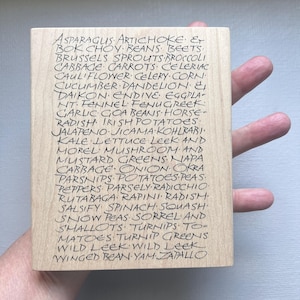 ASPARAGUS·ARTICHOKE·&
BOK CHOY·BEANS·BEETS·
BRUSSELS SPROUTS·BROCCOLI
CABBAGE·CARROTS·CELERIAC
CAULIFLOWER·CELERY·CORN·
CUCUMBER·DANDELION·&
DAIKON·ENDIVE·EGGPLA-
NT·FENNEL·FENUGREEK·
GARLIC·GOA BEANS·HORSE-
RADISH·IRISH POTATOES·
JALAPENO·JICAMA·KOHLRABI·
KALE·LETTUCE·LEEK AND
MOREL MUSHROOM AND
MUSTARD GREENS·NAPA
CABBAGE·ONION·OKRA
PARSNIPS·POTATOES·PEAS·
PEPPERS·PARSELY·RADICCHIO
RUTABAGA·RAPINI·RADISH·
SALSIFY·SPINACH·SQUASH
SNOW PEAS·SORREL AND
SHALLOTS·TURNIPS·TO-
MATOES·TURNIP GREENS
WILD LEEK·WILD LEEK·
WINGED BEAN·YAM·ZAPALLO